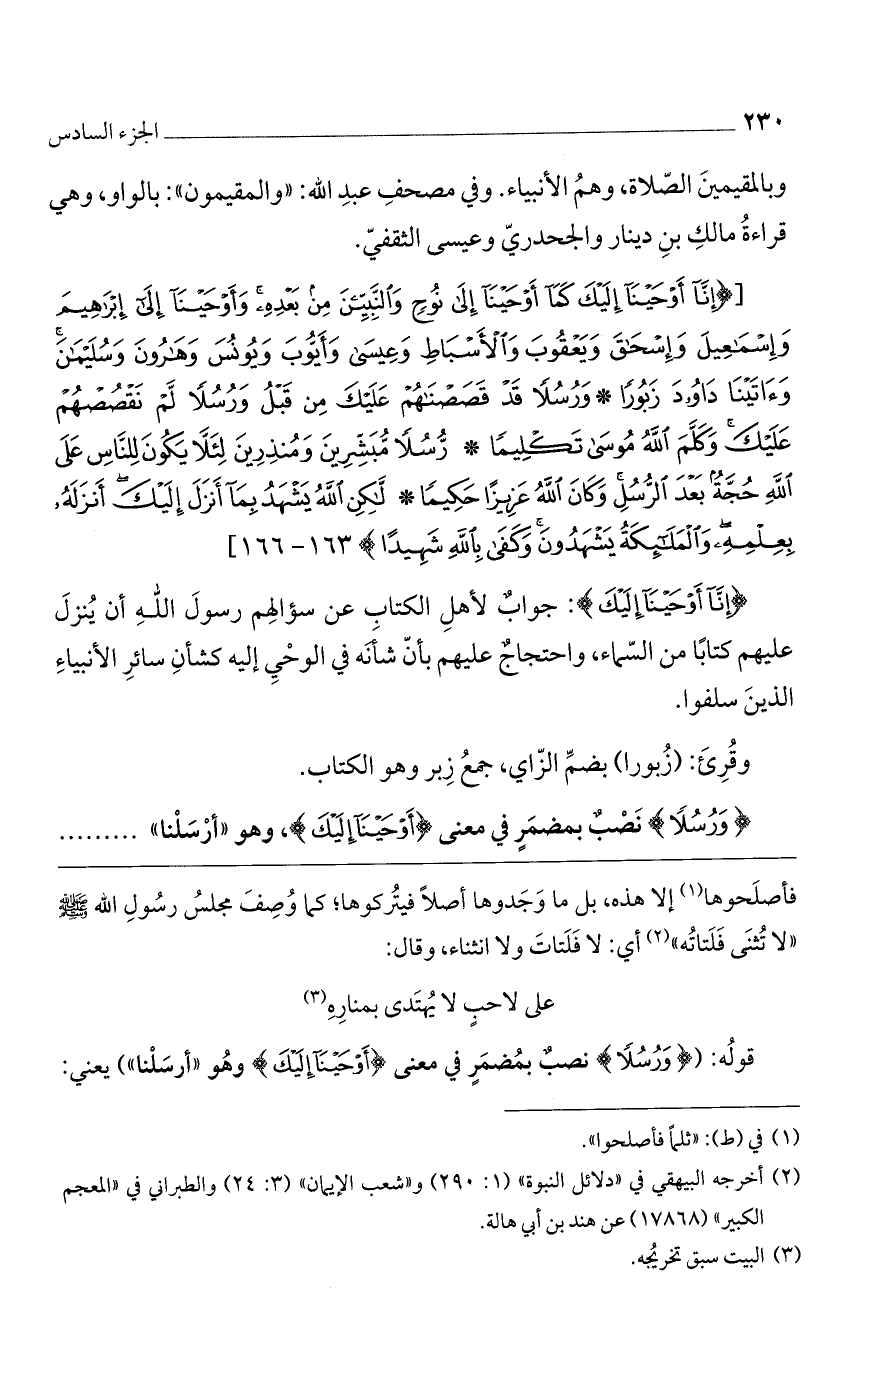 ٢٣٠ الجزء السادس
وبالمقيمينَ الصّلاة، وهمُ الأنبياء. وفي مصحفِ عبدِ الله: «والمقيمون»: بالواو، وهي
قراءةُ مالكِ بنِ دينار والجحدريّ وعيسى الثقفيّ.
[﴿إِنَّآ أَوْحَيْنَآ إِلَيْكَ كَمَآ أَوْحَيْنَآ إِلَىٰ نُوحٍ وَٱلنَّبِيِّـۧنَ مِنۢ بَعْدِهِۦ ۚ وَأَوْحَيْنَآ إِلَىٰٓ إِبْرَٰهِيمَ
وَإِسْمَٰعِيلَ وَإِسْحَٰقَ وَيَعْقُوبَ وَٱلْأَسْبَاطِ وَعِيسَىٰ وَأَيُّوبَ وَيُونُسَ وَهَٰرُونَ وَسُلَيْمَٰنَ ۚ
وَءَاتَيْنَا دَاوُۥدَ زَبُورًا * وَرُسُلًا قَدْ قَصَصْنَٰهُمْ عَلَيْكَ مِن قَبْلُ وَرُسُلًا لَّمْ نَقْصُصْهُمْ
عَلَيْكَ ۚ وَكَلَّمَ ٱللَّهُ مُوسَىٰ تَكْلِيمًا * رُّسُلًا مُّبَشِّرِينَ وَمُنذِرِينَ لِئَلَّا يَكُونَ لِلنَّاسِ عَلَى
ٱللَّهِ حُجَّةٌۢ بَعْدَ ٱلرُّسُلِ ۚ وَكَانَ ٱللَّهُ عَزِيزًا حَكِيمًا * لَّٰكِنِ ٱللَّهُ يَشْهَدُ بِمَآ أَنزَلَ إِلَيْكَ ۖ أَنزَلَهُۥ
بِعِلْمِهِۦ ۖ وَٱلْمَلَٰٓئِكَةُ يَشْهَدُونَ ۚ وَكَفَىٰ بِٱللَّهِ شَهِيدًا﴾ ١٦٣ - ١٦٦]
﴿إِنَّآ أَوْحَيْنَآ إِلَيْكَ﴾: جوابٌ لأهلِ الكتابِ عن سؤالِهم رسولَ اللهِ أن يُنزلَ
عليهم كتابًا من السّماء، واحتجاجٌ عليهم بأنّ شأنَه في الوحْيِ إليه كشأنِ سائرِ الأنبياءِ
الذينَ سلفوا.
وقُرِئَ: (زُبورا) بضمِّ الزّاي، جمعُ زِبر وهو الكتاب.
﴿وَرُسُلًا﴾ نَصْبٌ بمضمَرٍ في معنى ﴿أَوْحَيْنَآ إِلَيْكَ﴾، وهو «أرْسَلْنا» .........
فأصلَحوها(١) إلا هذه، بل ما وَجَدوها أصلاً فيتُركوها؛ كما وُصِفَ مجلسُ رسُولِ الله ﷺ
«لا تُثنَى فَلَتاتُه»(٢) أي: لا فَلَتاتَ ولا انثناء، وقال:
على لاحبٍ لا يُهتَدى بمنارِهِ(٣)
قولُه: (﴿وَرُسُلًا﴾ نصبٌ بمُضمَرٍ في معنى ﴿أَوْحَيْنَآ إِلَيْكَ﴾ وهُو «أرسَلْنا») يعني:
(١) في (ط): «ثلماً فأصلحوا».
(٢) أخرجه البيهقي في «دلائل النبوة» (١: ٢٩٠) و«شعب الإيمان» (٣: ٢٤) والطبراني في «المعجم
الكبير» (١٧٨٦٨) عن هند بن أبي هالة.
(٣) البيت سبق تخريجُه.